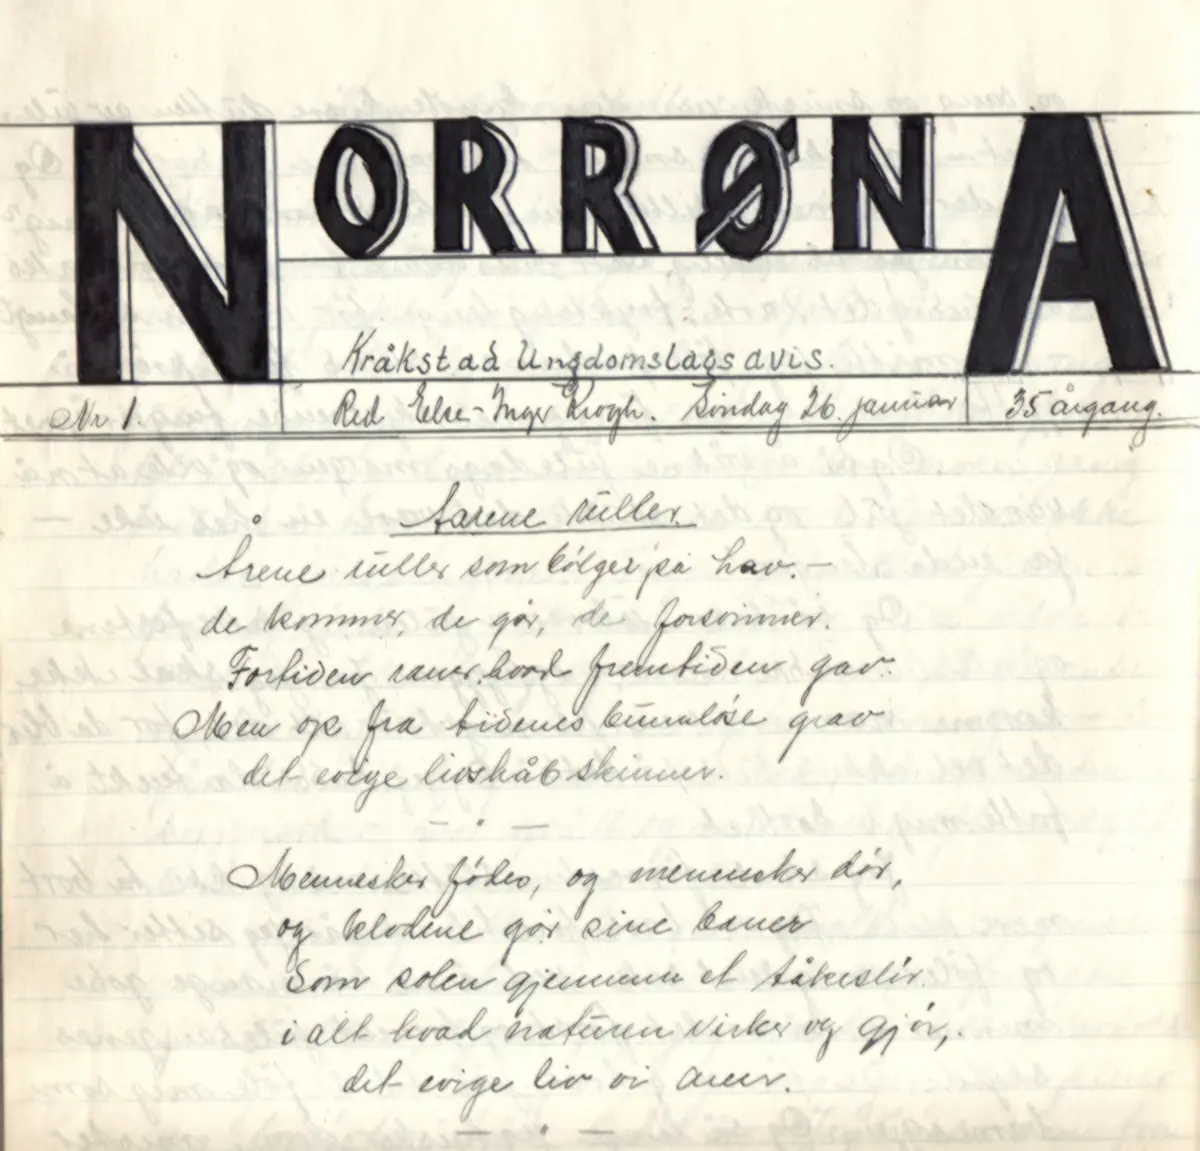 NORRØNA
Kråkstad Ungdomslags avis.
Nr 1. Red Else-Inger Krogh. Søndag 26. januar 35 årgang.
Aarene ruller.
Årene ruller som bølger på hav. –
de kommer, de går, de forsvinner.
Fortiden raner hvad fremtiden gav.
Men op fra tidenes bunnløse grav
det evige livshåb skinner.
— " —
Mennesker fødes, og mennesker dør,
og klodene går sine baner
Som solen gjennem et tåkeslør.
i alt hvad naturen virker og gjør,
det evige liv vi aner.
— " —